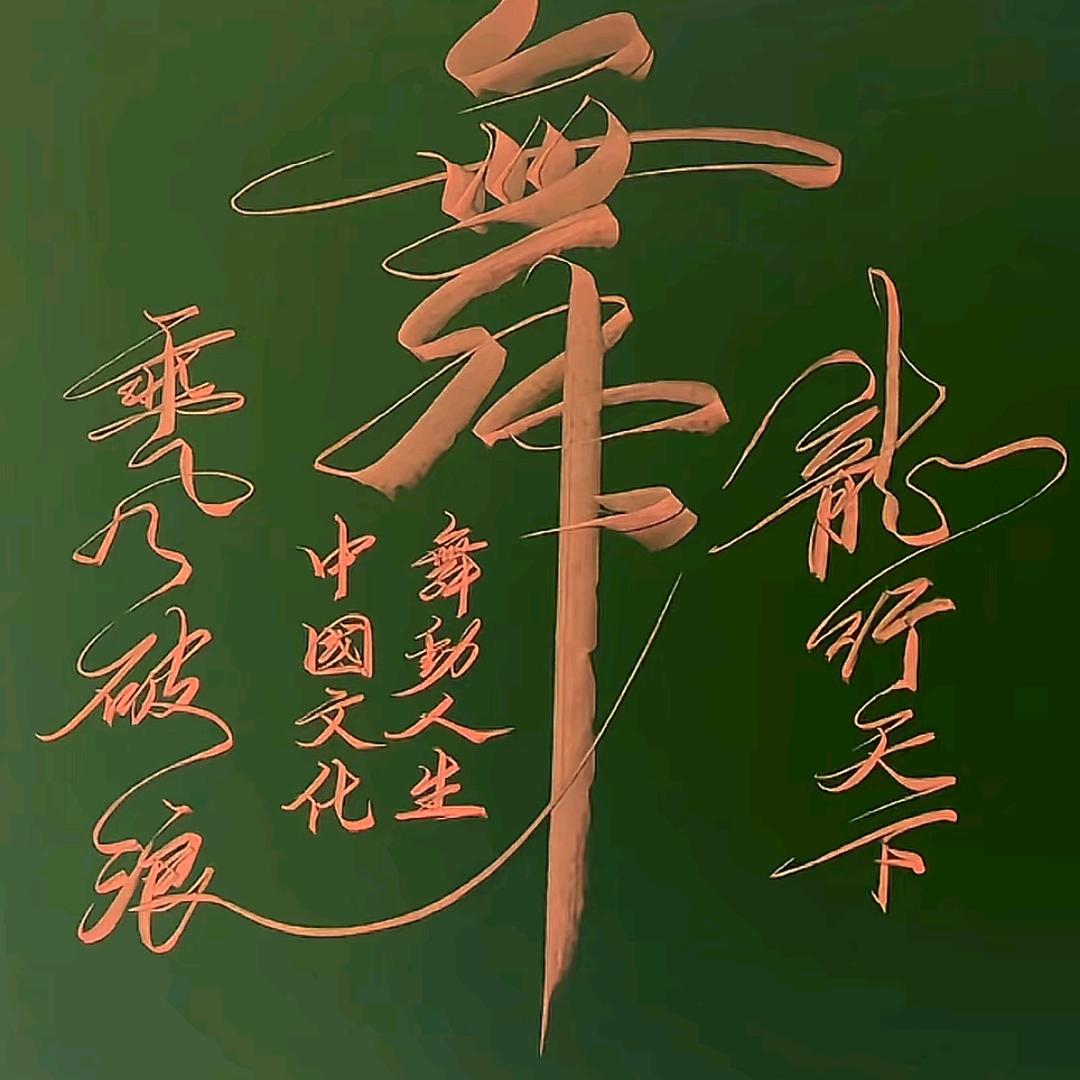 龍行天下
舞
舞動人生
中國文化
乘风破浪